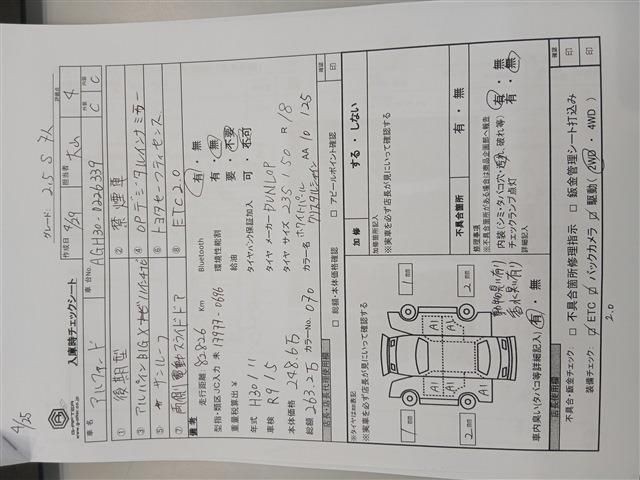 4/25
G-AFTER
www.g-after.co.jp
入庫時チェックシート
グレード 2.5 S 7人
作成日 4/29 担当者 大山
評価点 4 外装 C 内装 C
車名 アルファード 車台No. AGH30-0226339
① 後期型 ② 禁煙車
③ アルパインBIG X ④ OPデジタルインナーミラー
⑤ サンルーフ ⑥ トヨタセーフティセンス
⑦ 両側電動スライドドア ⑧ ETC 2.0
備考
走行距離: 82,826 Km Bluetooth 有・無
型指・類区 JC入力 未 17979-0696 環境性能割 有・無
重量税算出 ¥ 給油 要・不要
タイヤパンク保証加入 可・不可
年式 H30/11 タイヤ メーカー DUNLOP
車検 R9/5 タイヤ サイズ 235/50 R/18
本体価格 248.6万 カラー名 ホワイトパール
総額 263.2万 カラーNo. 070
店長・店長代理使用欄
□ 総額・本体価格確認 □ アピールポイント確認
確認 印
※タイヤはmm表記
※実車を必ず店長が見にいって確認する
加修 する・しない
加修箇所記入
※実車を必ず店長が見にいって確認する
不具合箇所 有・無
※不具合箇所がある場合は商品企画部へ報告
修理事項
内装(シミ・タバコ穴・汚れ・破れ等) 有・無
チェックランプ点灯 有・無
詳細記入
mm
mm
2 mm
2 mm
A1
A1
A1
A1
車内臭い(タバコ等詳細記入) 有・無
香水臭い有り
店長・店長代理使用欄
確認 印 印
不具合・鈑金チェック: □ 不具合箇所修理指示 □ 鈑金管理シート打込み
装備チェック: □ ETC □ バックカメラ □ 駆動(2WD・4WD)
2.0